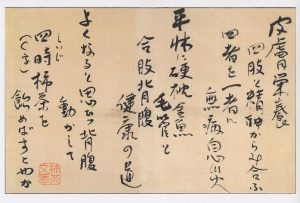 皮膚栄養
四肢と精神からみ合ふ
四者を一者に
無病息災
平牀に硬枕金魚
毛管と
合肢背腹
健康の道
よくなると思ひつ背腹
動かして
四時柿茶を
しいじ
飲めばすこやか